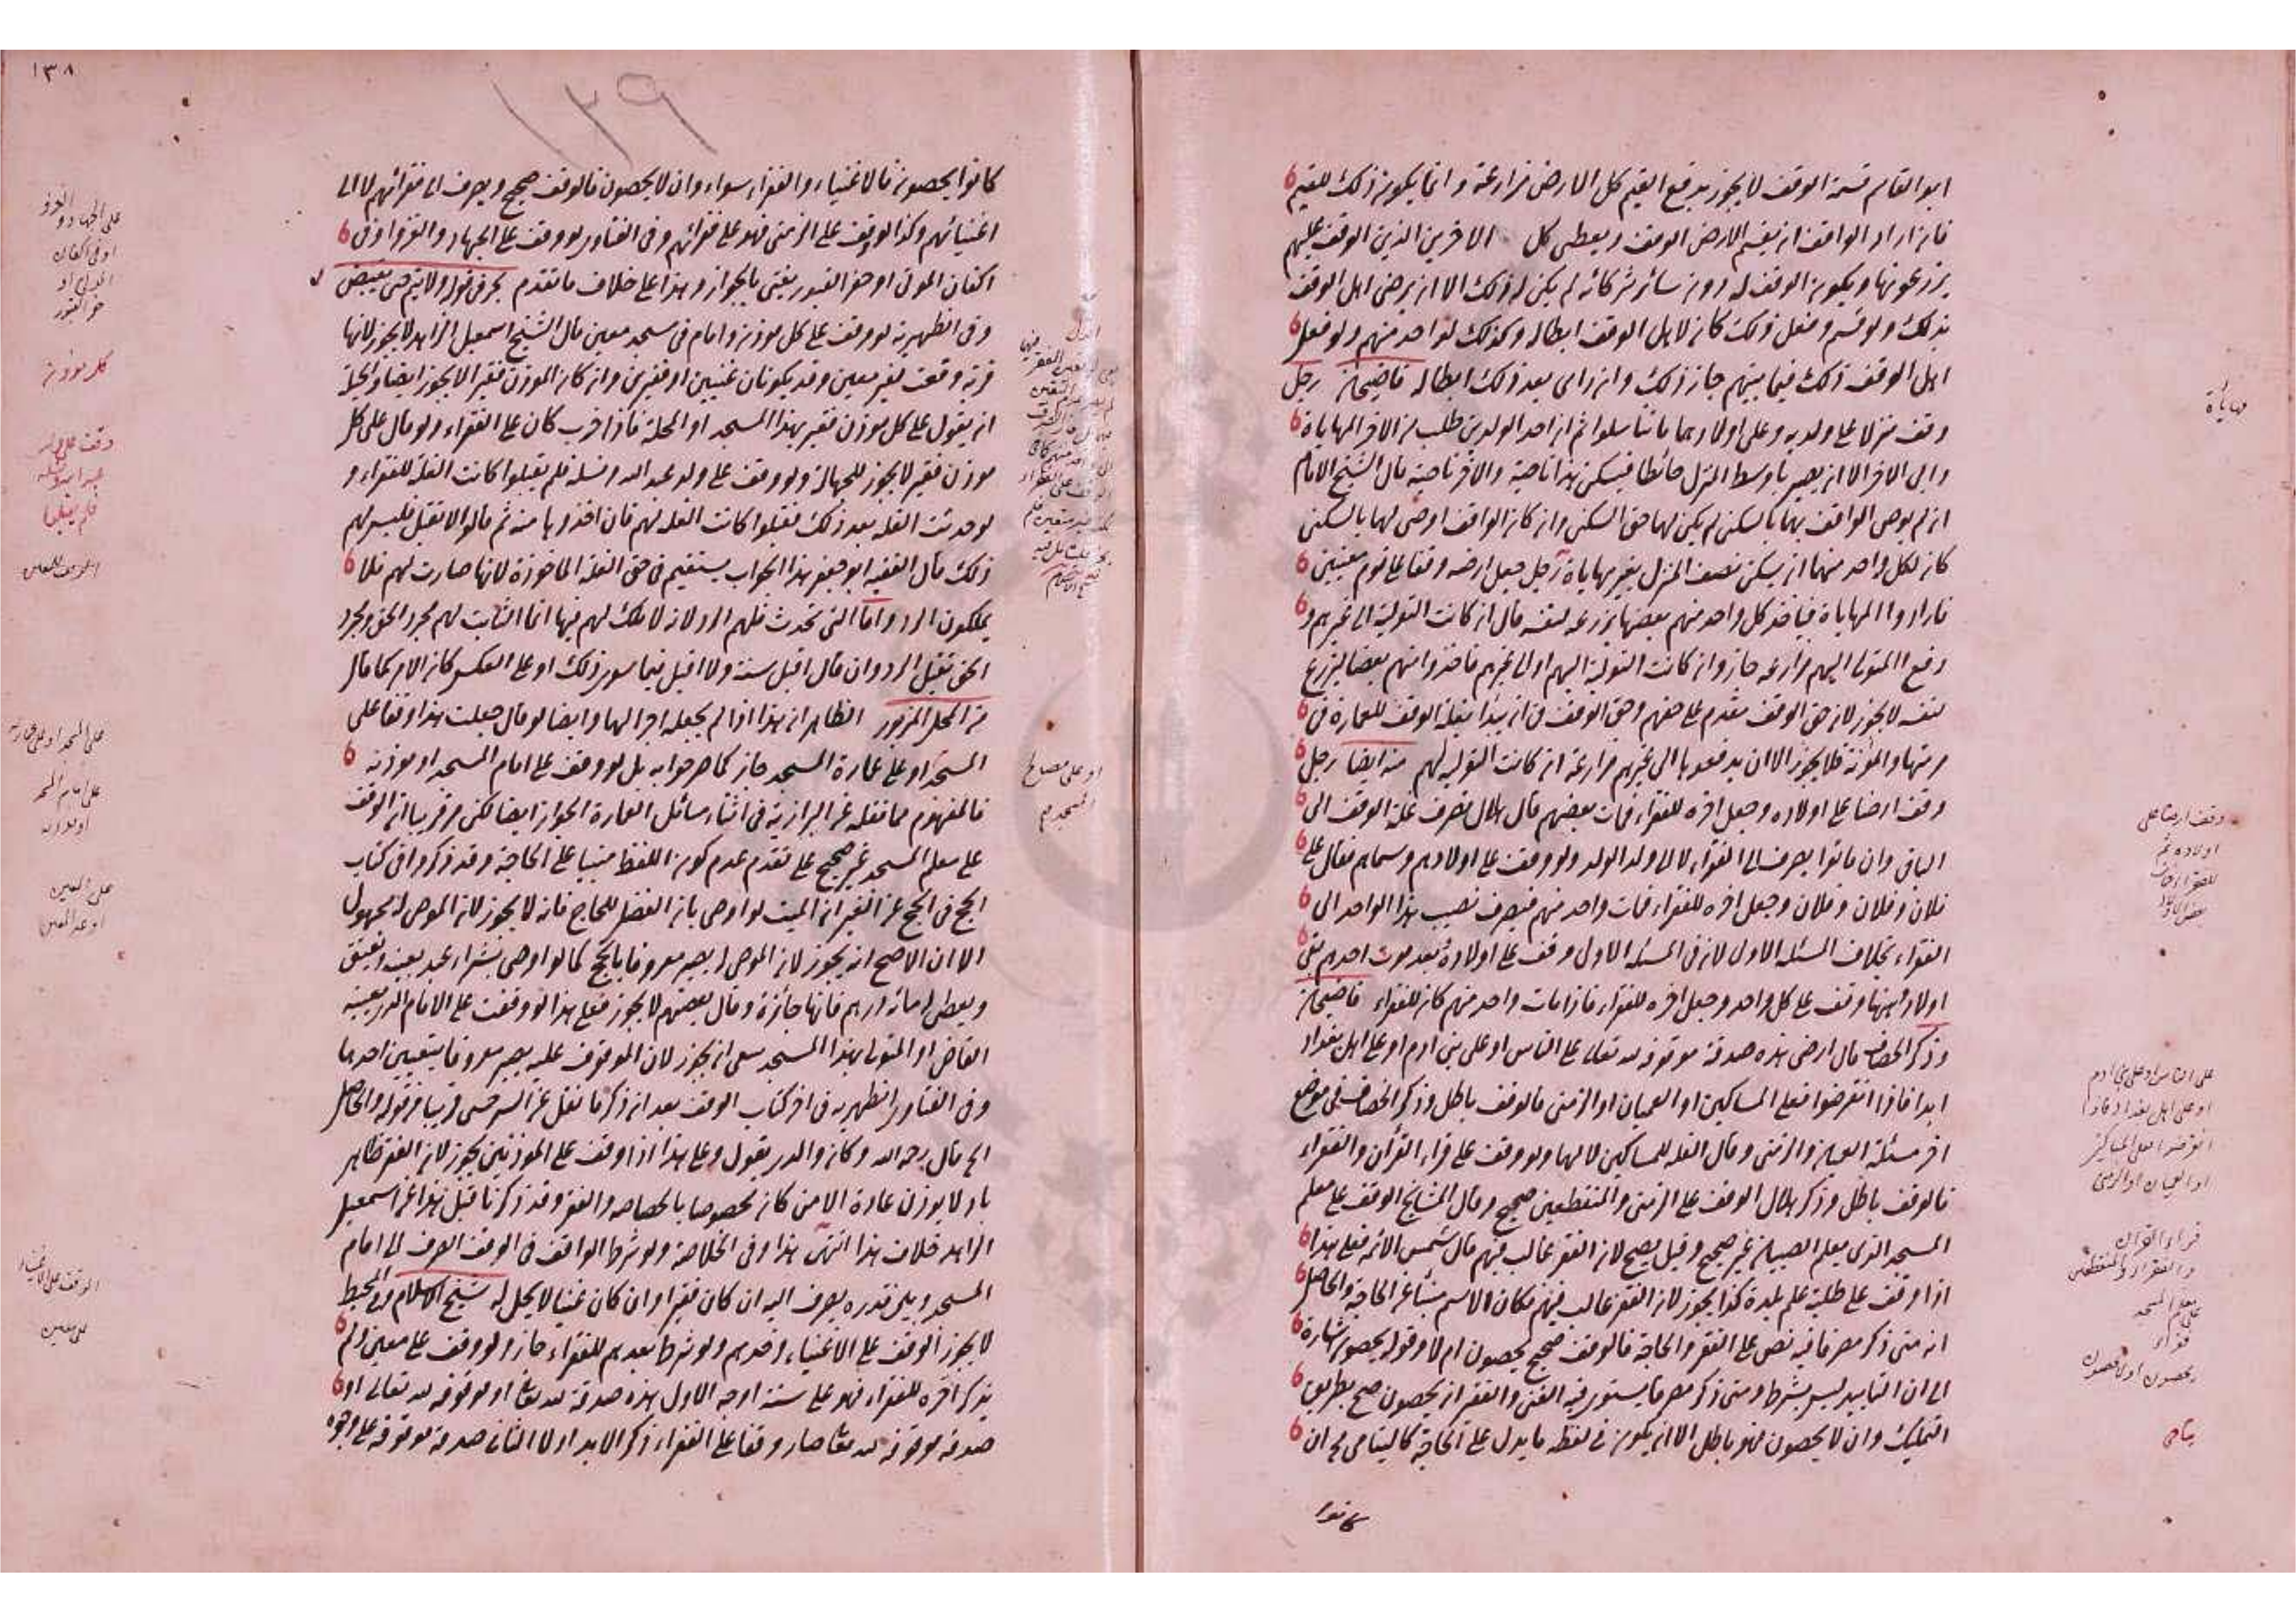 ابو القاسم قسمة الوقف لا يجوز يدفع القيم كل الارض مزارعة وانما يكون ذلك للقيم
فان اراد الواقف ان يقسم الارض الوقف ويعطى كل الاخرين الذين الوقف عليهم
يزرعونها ويكون الوقف له دون سائر شركائه لم يكن له ذلك الا ان يرضى اهل الوقف
بذلك ولو قسم وفعل ذلك كان لاهل الوقف ابطاله وكذلك لواحد منهم ولو فعل
اهل الوقف ذلك فيما بينهم جاز ذلك وان راى بعد ذلك ابطاله قاضيخان رجل
وقف منزلا على ولديه وعلى اولادهما ما تناسلوا ثم ان احد الولدين طلب من الاخر المهاياة
وابى الاخر الا ان يصير با وسط المنزل حائطا فيسكن هذا ناحية والاخر ناحية قال الشيخ الامام
ان لم يوص الواقف بهما بالسكنى لم يكن لهما حق السكنى وان كان الواقف اوصى لهما بالسكنى
كان لكل واحد منهما ان يسكن نصف المنزل بغير مهاياة رجل جعل ارضه وقفا على قوم معينين
فارادوا المهاياة فياخذ كل واحد منهم بعضها يزرعه لنفسه قال ان كانت التولية الى غيرهم و
دفع المتولى اليهم مزارعة جاز وان كانت التولية اليهم او الى غيرهم فاخذوا منهم بعضا ليزرع
لنفسه لا يجوز لان حق الوقف مقدم على حقهم وحق الوقف فى ان يبدأ بغلة الوقف للعمارة فى
مرمتها والمؤنة فلا يجوز الا ان يدفعوها الى غيرهم مزارعة ان كانت التولية لهم منه ايضا رجل
وقف ارضا على اولاده وجعل اخره للفقراء فمات بعضهم قال هلال تصرف غلة الوقف الى
الباقى وان ماتوا يصرف الى الفقراء لا الى ولد الولد ولو وقف على اولادهم وسماهم فقال على
فلان وفلان وفلان وجعل اخره للفقراء فمات واحد منهم فيصرف نصيب هذا الواحد الى
الفقراء بخلاف المسئلة الاولى لان فى المسئلة الاولى وقف على اولاده وبعد موت احدهم بقى
اولاد وههنا وقف على كل واحد وجعل اخره للفقراء فاذا مات واحد منهم كان للفقراء قاضيخان
وذكر الخصاف قال ارضى هذه صدقة موقوفة لله تعالى على الناس او على بنى ادم او على اهل بغداد
ابدا فاذا انقرضوا فعلى المساكين او العميان او الزمنى فالوقف باطل وذكر الخصاف فى موضع
اخر مسئلة العميان والزمنى وقال الغلة للمساكين لا لهما ولو وقف على قراء القرأن والفقراء
فالوقف باطل وذكر هلال الوقف على الزمنى والمنقطعين صحيح وقال المشايخ الوقف على معلم
المسجد الذى يعلم الصبيان غير صحيح وقيل يصح لان الفقر غالب فيهم قال شمس الائمة فعلى هذا
اذا وقف على طلبة علم بلدة كذا يجوز لان الفقر غالب فيهم فكان الاسم منبئا عن الحاجة والحاصل
انه متى ذكر مصرفا فيه نص على الفقر والحاجة فالوقف صحيح يحصون ام لا وقوله يحصون اشارة
الى ان التابيد ليس بشرط ومتى ذكر مصرفا يستوى فيه الغنى والفقير ان يحصون صح بطريق
التمليك وان لا يحصون فهو باطل الا ان يكون فى لفظه ما يدل على الحاجة كاليتامى فح ان
كانوا
مهاياة
وقف ارضا على
اولاده ثم
للفقراء فمات
على الناس او على بنى ادم
او على اهل بغداد فاذا
انقرضوا فعلى المساكين
او العميان او الزمنى
قراء القران
والفقراء والمنقطعين
معلم المسجد
يحصون او لا يحصون
يتامى
١٣٨
١٣٩
كانوا يحصون فالاغنياء والفقراء سواء وان لا يحصون فالوقف صحيح ويصرف الى فقرائهم لا الى
اغنيائهم وكذا الوقف على الزمنى فهو على فقرائهم وفى الفتاوى لو وقف على الجهاد والغزو او فى
اكفان الموتى او حفر القبور يفتى بالجواز وهذا على خلاف ما تقدم بحر فى قوله ولا يتم حتى يقبض
وفى الظهيرية لو وقف على كل مؤذن وامام فى مسجد معين قال الشيخ اسمعيل الزاهد لا يجوز لانها
قربة وقعت لغير معين وقد يكونان غنيين او فقيرين وان كان المؤذن فقيرا لا يجوز ايضا والحيلة
ان يقول على كل مؤذن فقير بهذا المسجد او المحلة فاذا خرب كان على الفقراء ولو قال على كل
مؤذن فقير لا يجوز للجهالة ولو وقف على ولد عبد الله ونسله فلم يقبلوا كانت الغلة للفقراء و
لو حدثت الغلة بعد ذلك فقبلوا كانت الغلة لهم فان اخذوها سنة ثم قالوا لا نقبل فليس لهم
ذلك قال الفقيه ابو جعفر هذا الجواب يستقيم فى حق الغلة الماخوذة لانها صارت لهم فلا
يملكون الرد واما التى تحدث فلهم الرد لانه لا ملك لهم فيها انما الثابت لهم مجرد الحق ومجرد
الحق يقبل الرد وان قال اقبل سنة ولا اقبل فيما سوى ذلك او على العكس كان الامر كما قال
من المحل المزبور الظاهر ان هذا اذا لم يجعله اجرا لها وايضا لو قال جعلت هذا وقفا على
المسجد او على عمارة المسجد جاز كما صرحوا به بل لو وقف على امام المسجد او مؤذنه
فالمفهوم مما نقله عن البزازية فى اثناء مسائل العمارة الجواز ايضا لكن مر قريبا ان الوقف
على معلم المسجد غير صحيح على تقدم عدم كون اللفظ منبئا على الحاجة وقد ذكروا فى كتاب
الحج فى الحج عن الغير ان الميت لو اوصى بان الفضل للحاج فانه لا يجوز لان الموصى له مجهول
الا ان الاصح انه يجوز لان الموصى له يصير معروفا بالحج كما لو اوصى بشراء عبد بعينه ويعتق
ويعطى له مائة درهم فانها جائزة وقال بعضهم لا يجوز فعلى هذا لو وقفت على الامام الذى يعينه
القاضى او المتولى بهذا المسجد ينبغى ان يجوز لان الموقوف عليه يصير معروفا بتعيين احدهما
وفى الفتاوى الظهيرية فى اخر كتاب الوقف بعد ان ذكر ما نقل عن السرخسى قريبا من قوله والحاصل
الخ قال رحمه الله وكان والدى يقول وعلى هذا اذا وقف على المؤذنين يجوز لان الفقر ظاهر
باد لا يؤذن عادة الا من كان مخصوصا بالخصاصة والفقر وقد ذكرنا قبل هذا عن اسمعيل
الزاهد خلاف هذا انتهى هذا وفى الخلاصة ولو شرط الواقف فى الوقف الصرف الى امام
المسجد وبين قدره يصرف اليه ان كان فقيرا وان كان غنيا لا يحل له شيخ الاسلام وفى المحيط
لا يجوز الوقف على الاغنياء وحدهم ولو شرط بعدهم للفقراء جاز ولو وقف على معين ولم
يذكر اخره للفقراء فهو على ستة اوجه الاول هذه صدقة لله تعالى او موقوفة لله تعالى او
صدقة موقوفة لله تعالى صار وقفا على الفقراء ذكر الابد او لا الثانى صدقة موقوفة على وجوه
على الجهاد والغزو
او فى اكفان
الموتى او
حفر القبور
كل مؤذن
فلم يقبلوا
على المسجد او على عمارته
على امام المسجد
او مؤذنه
على المعين
او غير المعين
الوقف على الاغنياء
على معين
او على مصالح
المسجد